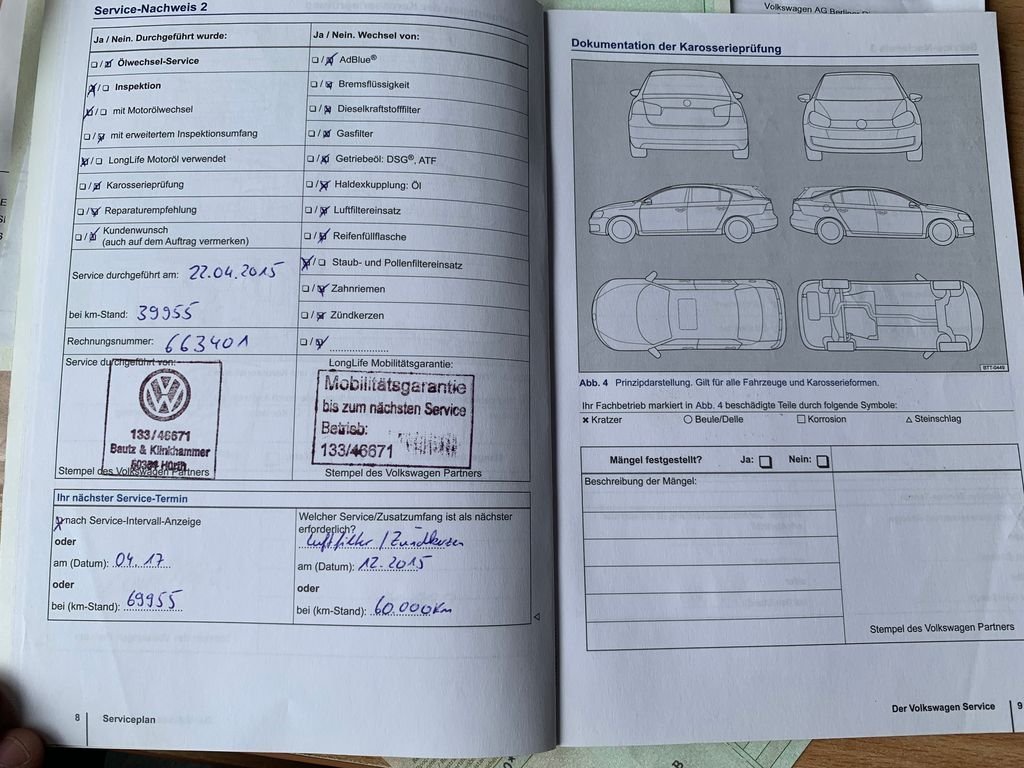 Volkswagen AG
Service-Nachweis 2
Ja / Nein. Durchgeführt wurde:
Ölwechsel-Service
Inspektion
mit Motorölwechsel
mit erweitertem Inspektionsumfang
LongLife Motoröl verwendet
Karosserieprüfung
Reparaturempfehlung
Kundenwunsch
(auch auf dem Auftrag vermerken)
Service durchgeführt am: 22.04.2015
bei km-Stand: 39955
Rechnungsnummer: 663401
Ja / Nein. Wechsel von:
AdBlue®
Bremsflüssigkeit
Dieselkraftstofffilter
Gasfilter
Getriebeöl: DSG®, ATF
Haldexkupplung: Öl
Luftfiltereinsatz
Reifenfüllflasche
Staub- und Pollenfiltereinsatz
Zahnriemen
Zündkerzen
Service durchgeführt von:
133/46671
Bautz & Klinkhammer
50354 Hürth
Stempel des Volkswagen Partners
LongLife Mobilitätsgarantie:
Mobilitätsgarantie
bis zum nächsten Service
Betrieb:
133/46671
Stempel des Volkswagen Partners
Ihr nächster Service-Termin
nach Service-Intervall-Anzeige
oder
am (Datum): 04.17
oder
bei (km-Stand): 69955
Welcher Service/Zusatzumfang ist als nächster
erforderlich?
Luftfilter / Zündkerzen
am (Datum): 12.2015
oder
bei (km-Stand): 60.000Km
8 Serviceplan
Dokumentation der Karosserieprüfung
BTT-0449
Abb. 4 Prinzipdarstellung. Gilt für alle Fahrzeuge und Karosserieformen.
Ihr Fachbetrieb markiert in Abb. 4 beschädigte Teile durch folgende Symbole:
× Kratzer ○ Beule/Delle □ Korrosion △ Steinschlag
Mängel festgestellt? Ja: Nein:
Beschreibung der Mängel:
Stempel des Volkswagen Partners
Der Volkswagen Service 9